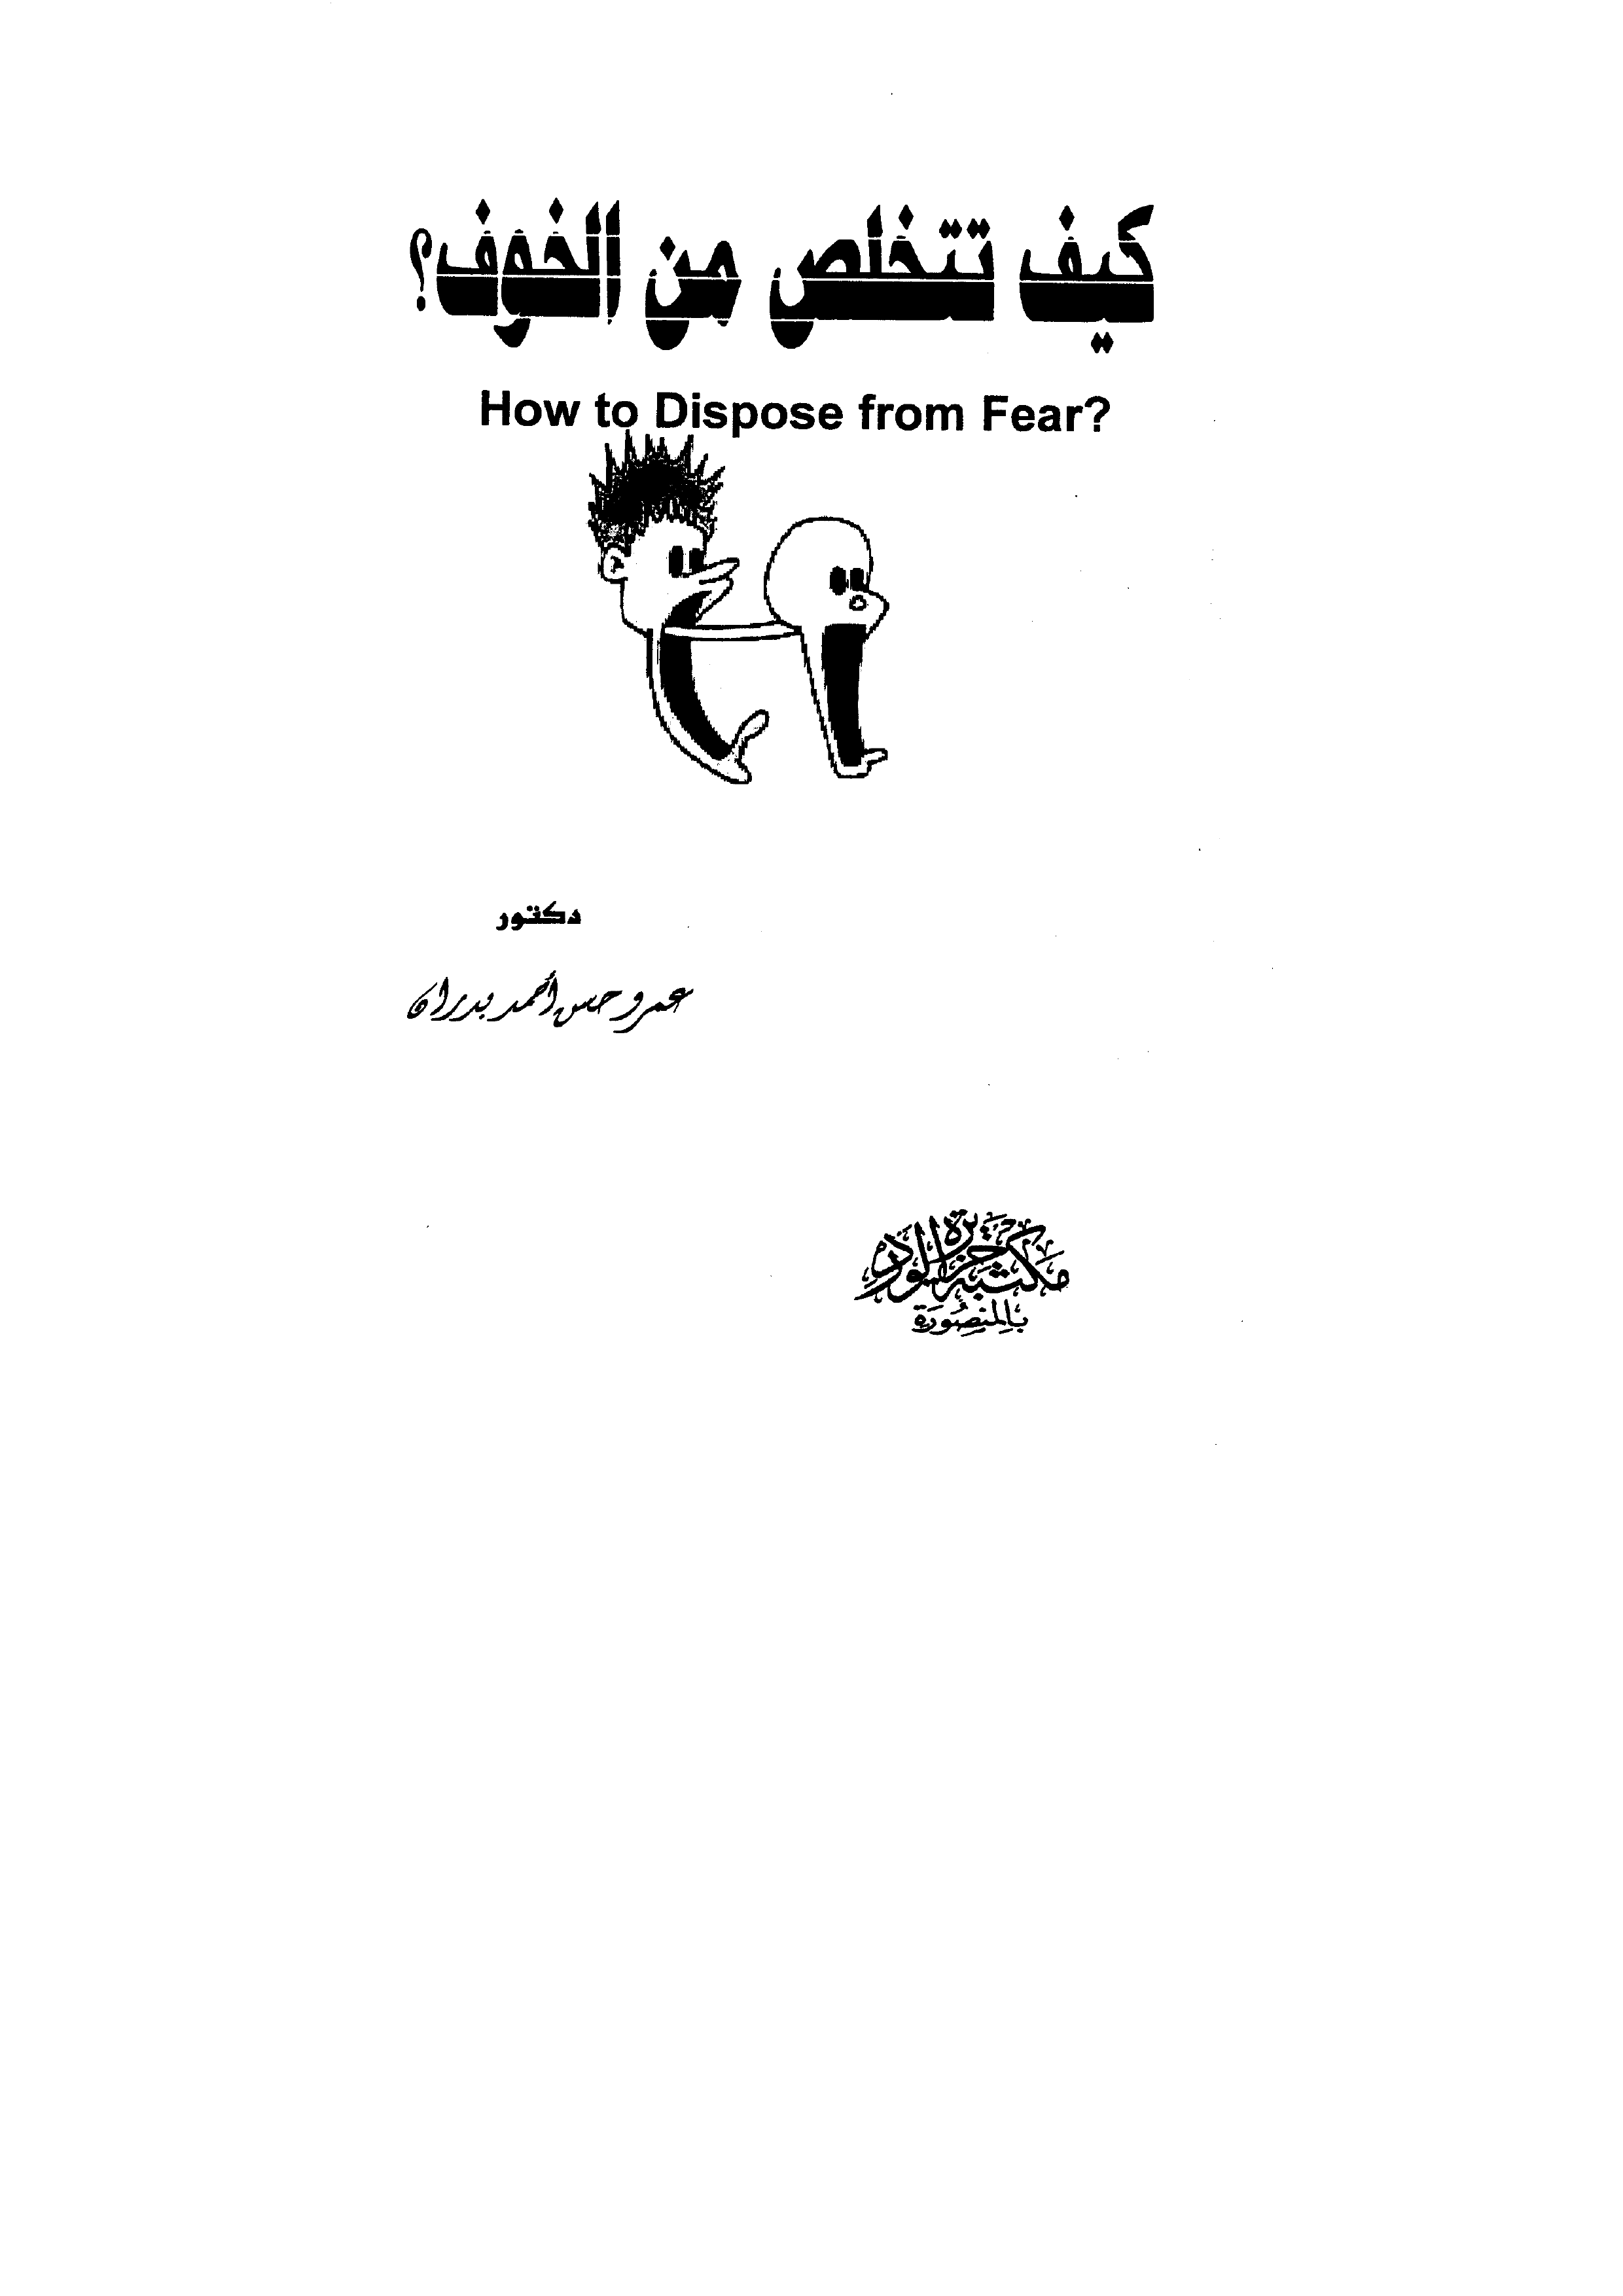 كيف تتخلص من الخوف؟
How to Dispose from Fear?
دكتور
عمرو حسن أحمد بدران
مكتبة جزيرة الورد
بالمنصورة